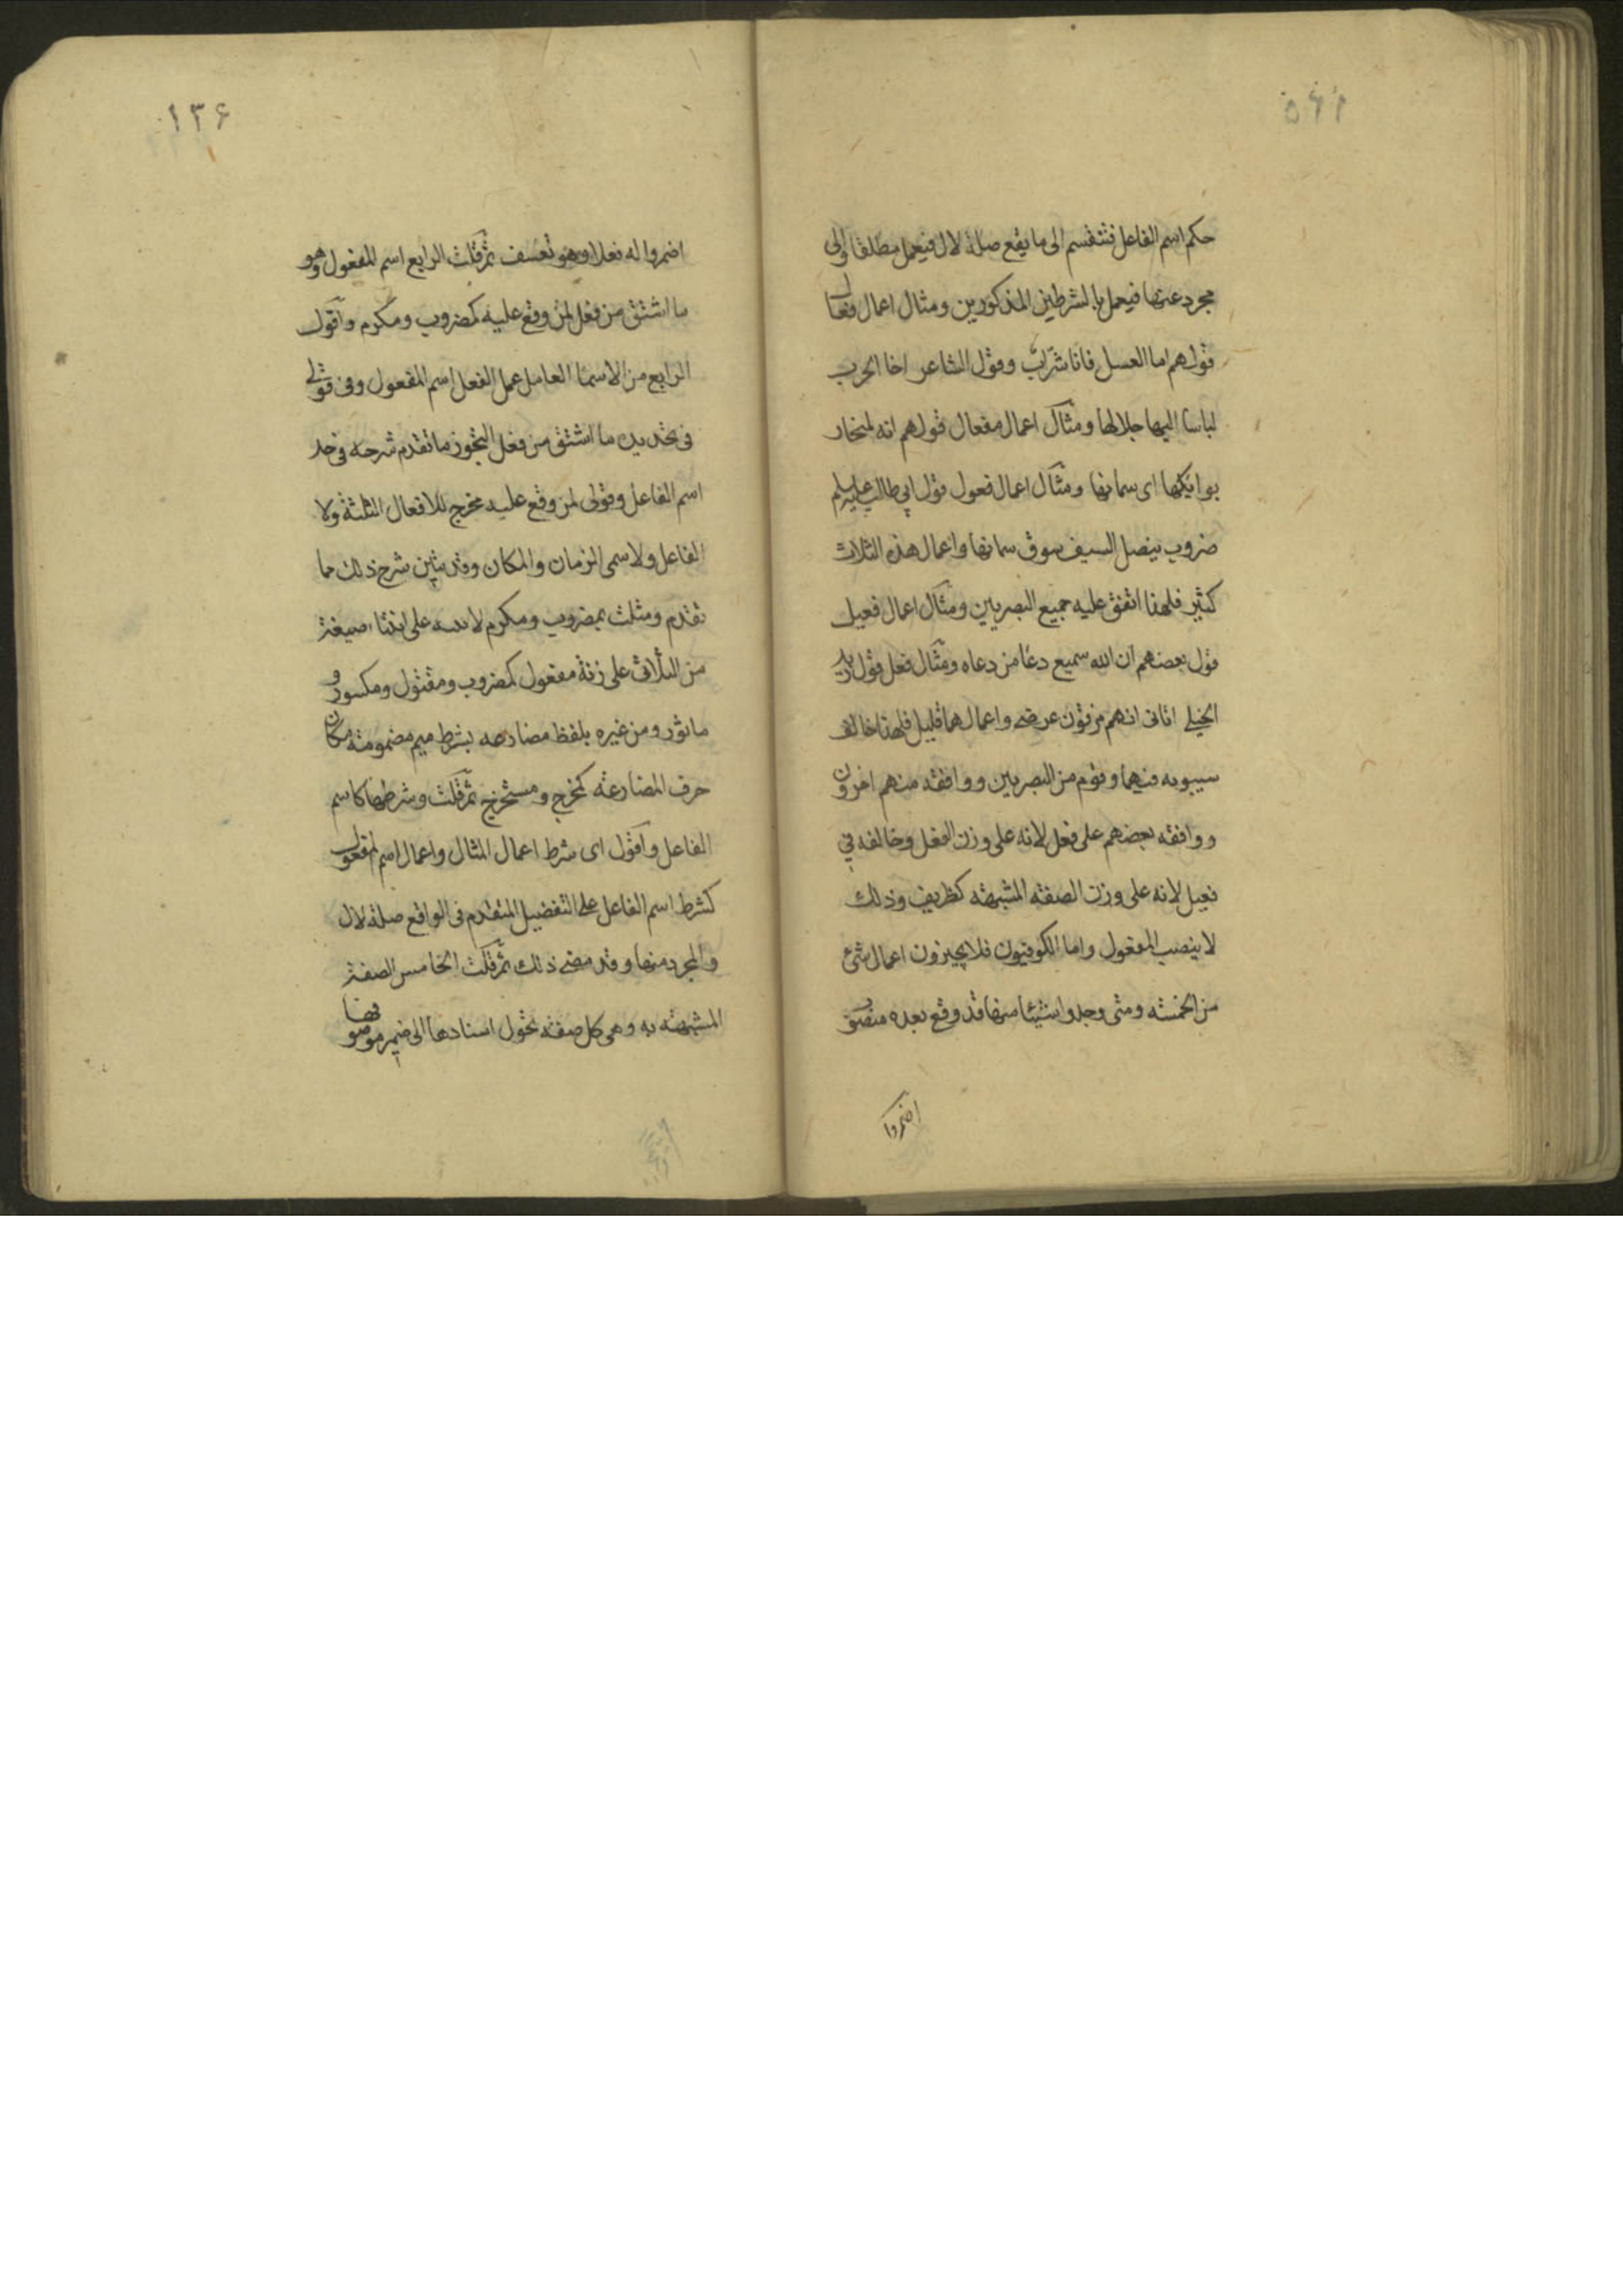 حكم اسم الفاعل فتنقسم الى ما يقع صلة لال فيعمل مطلقا والى
مجرد عنها فيعمل بالشرطين المذكورين ومثال اعمال فعال
قولهم اما العسل فانا شرّاب وقول الشاعر اخا الحرب
لباسا اليها جلالها ومثال اعمال مفعال قولهم انه لمنحار
بوائكها اى سمانها ومثال اعمال فعول قول ابي طالب
ضروب بنصل السيف سوق سمانها واعمال هذه الثلاث
كثير فلهذا اتفق عليه جميع البصريين ومثال اعمال فعيل
قول بعضهم ان الله سميع دعا من دعاه ومثال فعل قول زيد
الخيل اتانى انهم مزقون عرضى واعمالهما قليل فلهذا خالف
سيبويه فيهما وقوم من البصريين ووافقه منهم اخرون
ووافقه بعضهم على فعل لانه على وزن الفعل وخالفه في
فعيل لانه على وزن الصفة المشبهة كظريف وذلك
لا ينصب المفعول واما الكوفيون فلا يجيزون اعمال شئ
من الخمسة ومتى وجدوا شيئا منها قد وقع بعده منصوب
اضمروا
١٣۶
اضمروا له فعلا وهو تعسف ثم قلت الرابع اسم المفعول وهو
ما اشتق من فعل لمن وقع عليه كمضروب ومكرم واقول
الرابع من الاسما العامل عمل الفعل اسم المفعول وفى قولى
فى تحديده ما اشتق من فعل التجوز ما تقدم شرحه فى حد
اسم الفاعل وقولى لمن وقع عليه مخرج للافعال الثلثة ولا
الفاعل ولاسمى الزمان والمكان وقد تبين شرح ذلك مما
تقدم ومثلت بمضروب ومكرم على ان صيغة
من الثلاثى على زنة مفعول كمضروب ومقتول ومكسور و
ماثور ومن غيره بلفظ مضارعه بشرط ميم مضمومة مكان
حرف المضارعة كمخرج ومستخرج ثم قلت وشرطهما كاسم
الفاعل واقول اى شرط اعمال المثال واعمال اسم المفعول
كشرط اسم الفاعل على التفضيل المتقدم فى الواقع صلة لال
والمجرد منها وقد مضى ذلك ثم قلت الخامس الصفة
المشبهة به وهى كل صفة تحول اسنادها الى ضمير موصوفها